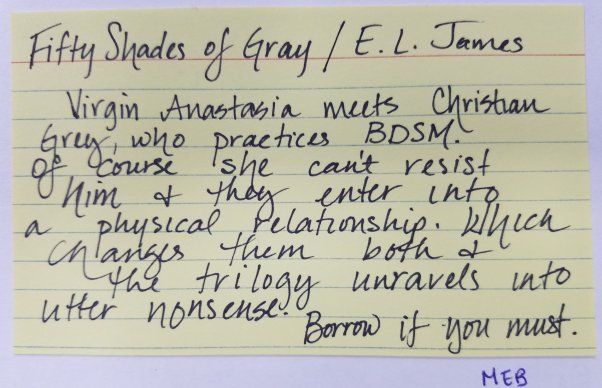 Fifty Shades of Gray / E. L. James
Virgin Anastasia meets Christian
Grey, who practices BDSM.
Of course she can't resist
him & they enter into
a physical relationship. Which
changes them both &
the trilogy unravels into
utter nonsense.
Borrow if you must.
MEB